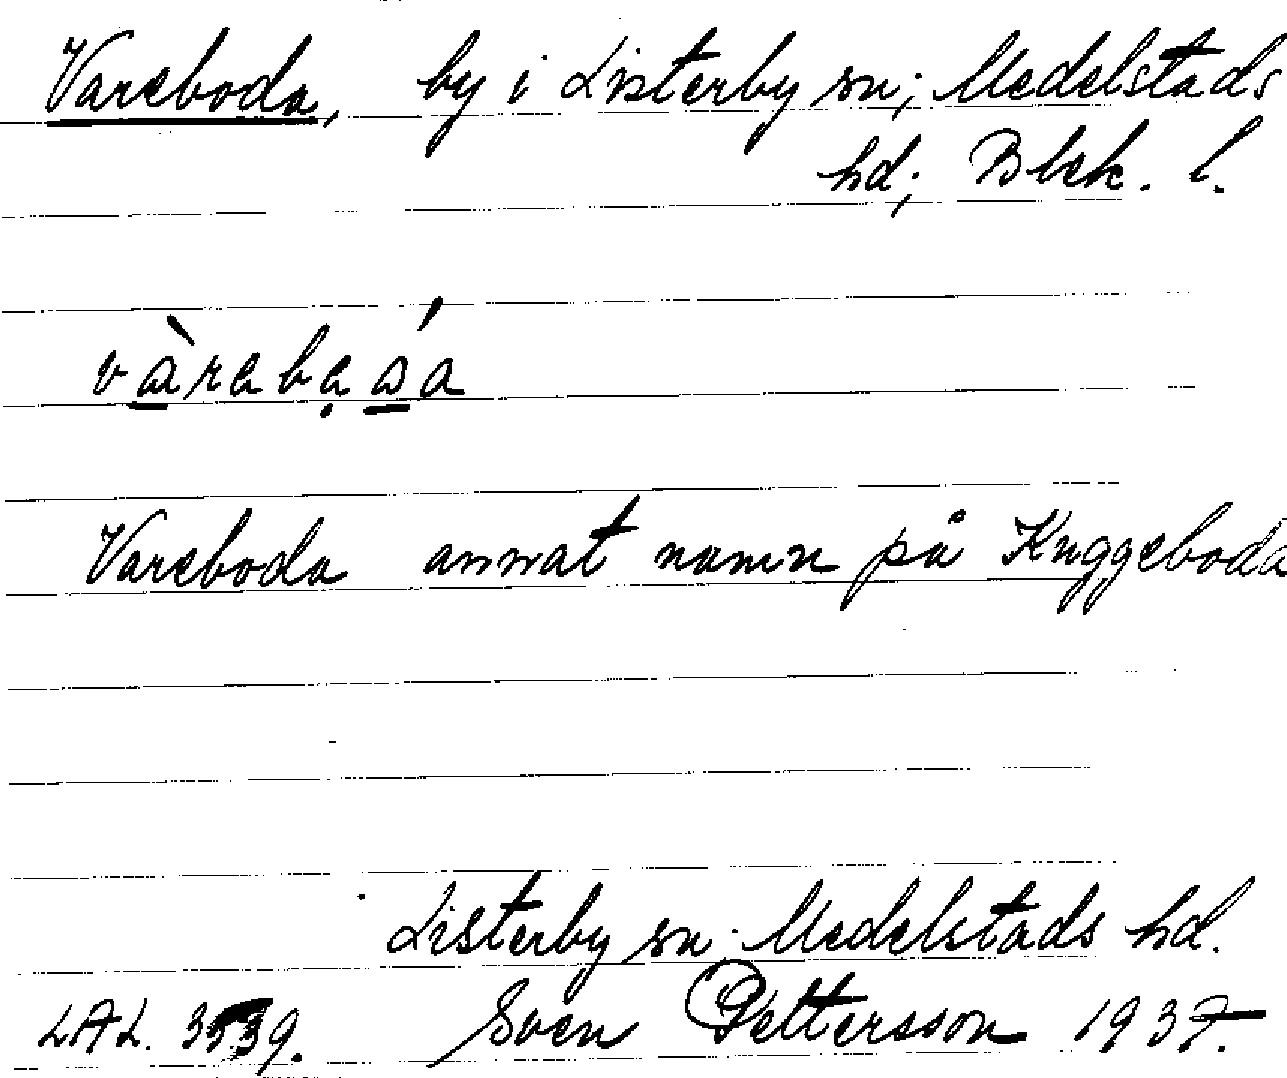 Vareboda, by i Listerby sn; Medelstads
hd; Blek. l.
vàrebẹsá
Vareboda annat namn på Kuggeboda
Listerby sn. Medelstads hd.
LAL. 3539. Sven Pettersson 1937.